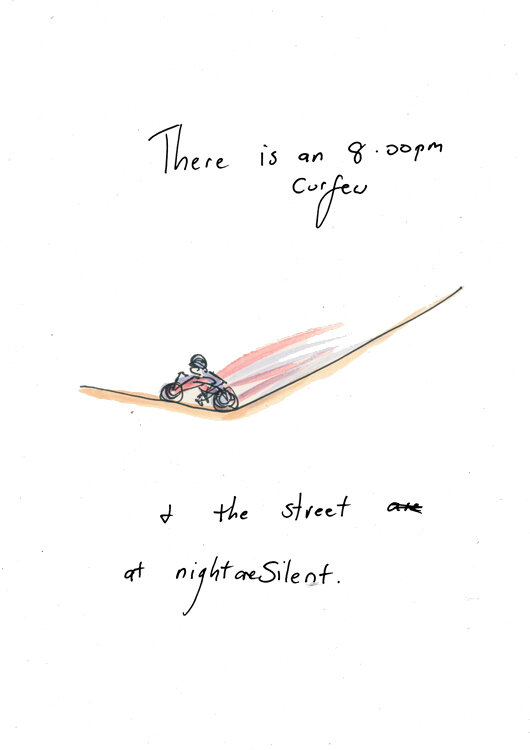 There is an 8.00pm
Curfew
& the street are
at night are Silent.